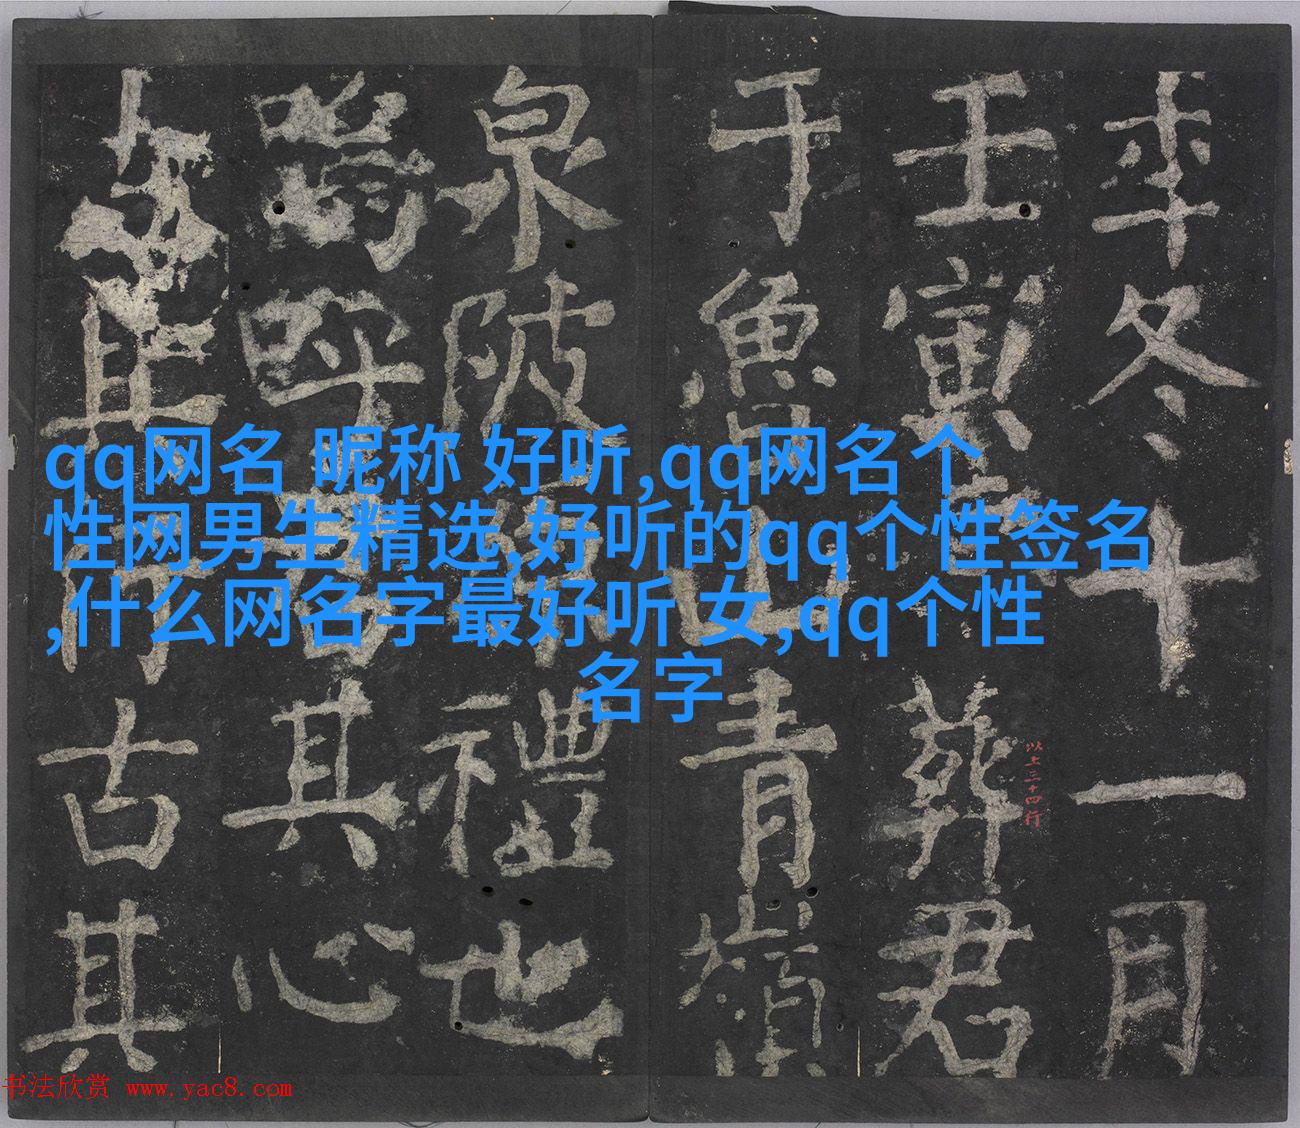 qq网名 昵称 好听,qq网名个
性网男生精选,好听的qq个性签名
,什么网名字最好听 女,qq个性
名字
年冬十一月
壬寅葬君
以上三十四行
于魯山青嶺
泉陂禮也
嗚呼其心
其行古其
书法欣赏 www.yac8.com